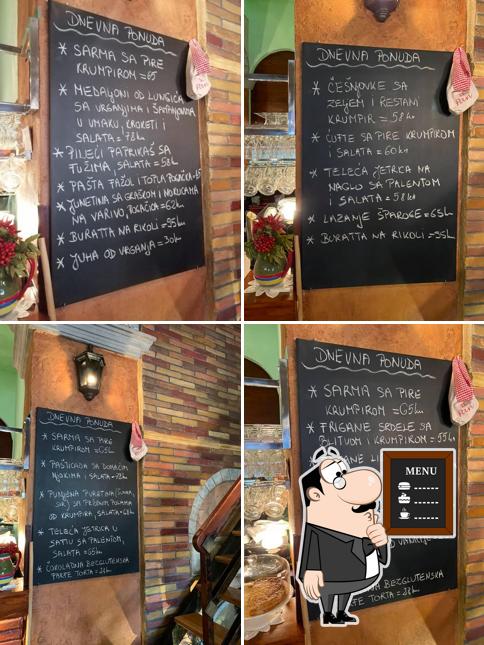 DNEVNA PONUDA
* SARMA SA PIRE
KRUMPIROM = 65
* MEDALJONI OD LUNGIĆA
SA VRGANJIMA I ŠAMPINJONIMA
U UMAKU, KROKETI I
SALATA = 78kn
* PILEĆI PAPRIKAŠ SA
TUŽIMA, SALATA = 58kn
* PAŠTA FAŽOL I TOPLA POGAČICA = 45
* JUNETINA SA GRAŠKOM I NOKICAMA
NA VARIVO, POGAČICA = 62kn
* BURATTA NA RIKOLI = 95kn
* JUHA OD VRGANJA = 30kn
DNEVNA PONUDA
* ČEŠNJOVKE SA
ZELJEM I RESTANI
KRUMPIR = 58kn
* ĆUFTE SA PIRE KRUMPIROM
I SALATA = 60kn
* TELEĆA JETRICA NA
NAGLO SA PALENTOM
I SALATA = 58kn
* LAZANJE ŠPAROGE = 65kn
* BURATTA NA RIKOLI = 95kn
DNEVNA PONUDA
* SARMA SA PIRE
KRUMPIROM = 65kn
* PAŠTICADA SA DOMAĆIM
NJOKIMA I SALATA = 72kn
* PUNJENA PURETINA
SA PEČENOM POLAMA
OD KRUMPIRA, SALATA = 68kn
* TELEĆA JETRICA U
SAFTU SA PALENTOM,
SALATA = 65kn
* ČOKOLADNA BEZGLUTENSKA
PARFE TORTA = 28kn
DNEVNA PONUDA
* SARMA SA PIRE
KRUMPIROM = 65kn
* FRIGANE SRDELE SA
BLITVOM I KRUMPIROM = 55kn
MENU
BEZGLUTENSKA
PARFE TORTA = 28kn